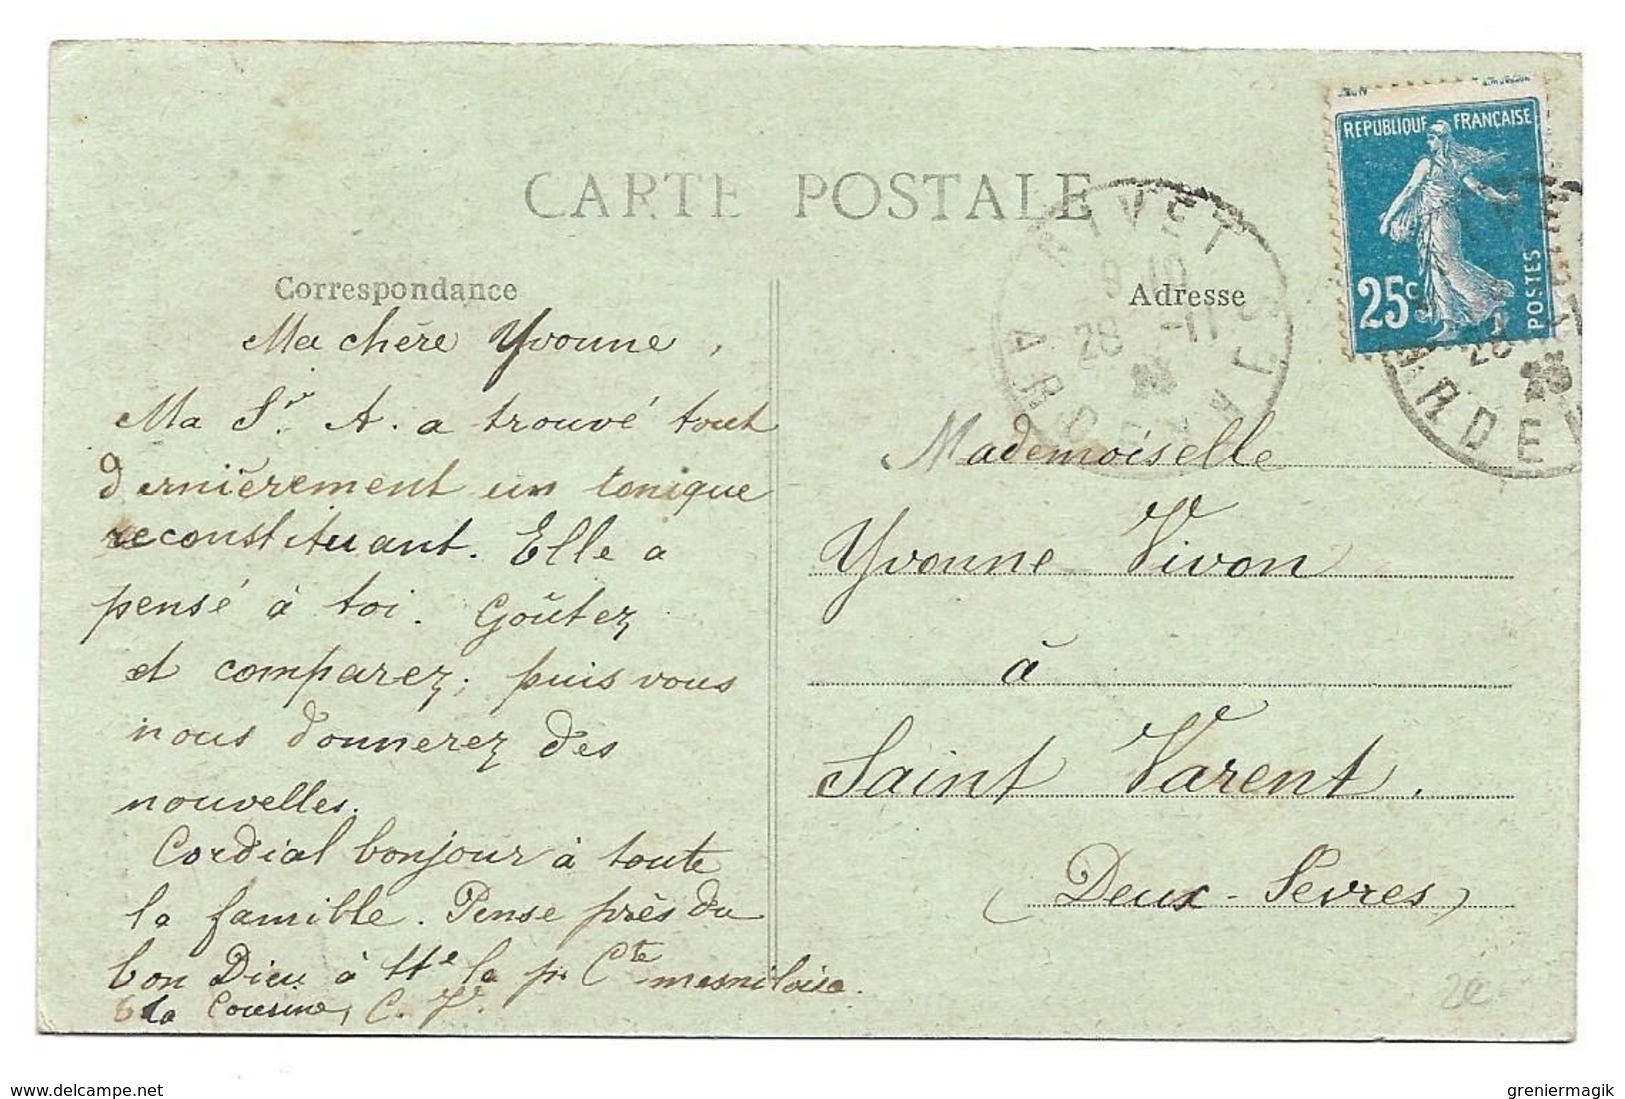 CARTE POSTALE
Correspondance
Ma chère Yvonne,
Ma Sr. A. a trouvé tout
dernièrement un tonique
reconstituant. Elle a
pensé à toi. Goûtez
et comparez; puis vous
nous donnerez des
nouvelles.
Cordial bonjour à toute
la famille. Pense près du
bon Dieu à tte la pte Cte mesniloise.
Ta Cousine, C. V.
Adresse
Mademoiselle
Yvonne Vivon
à
Saint Varent.
(Deux-Sevres)
REPUBLIQUE FRANÇAISE
25c
POSTES
RIVET
9 10
28 -11
28
ARDE
2e
www.delcampe.net
greniermagik